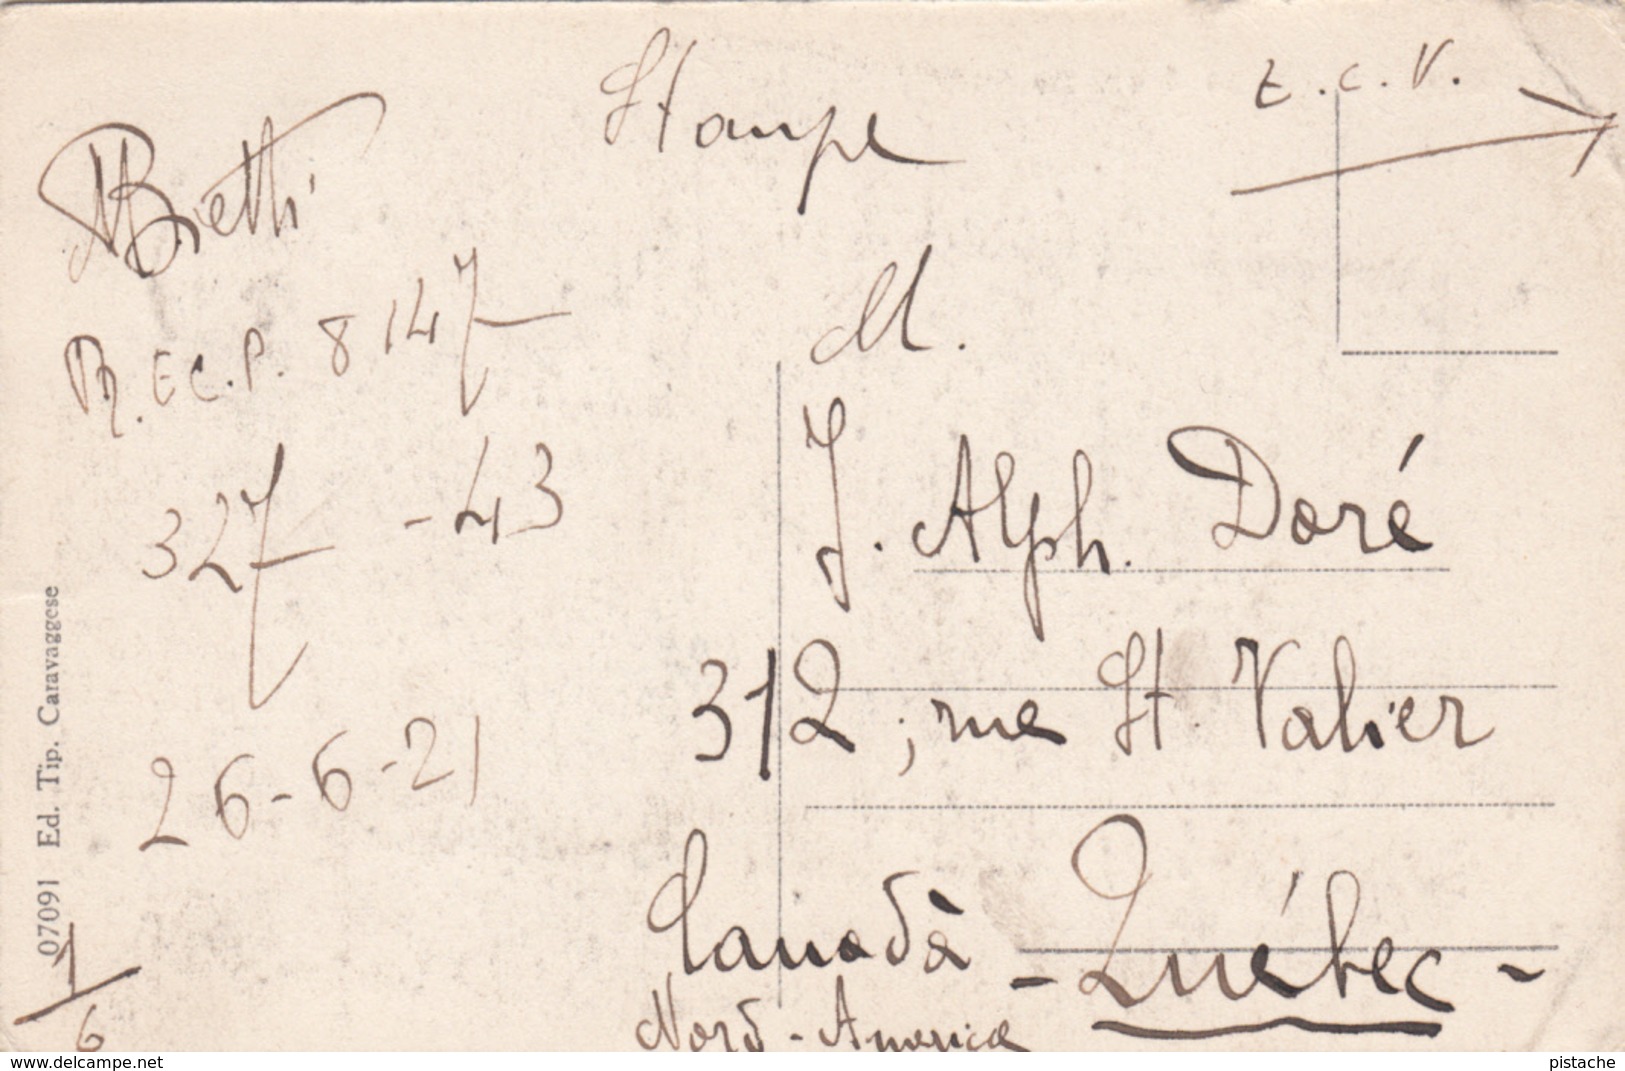 Stampe
t.c.v.
M Betti
R.E.C.P. 8147
327 - 43
26-6-21
1/6
M.
J. Alph. Doré
312, rue St. Valier
Canadà - Québec -
Nord - America
07091 Ed. Tip. Caravaggese
www.delcampe.net
pistache